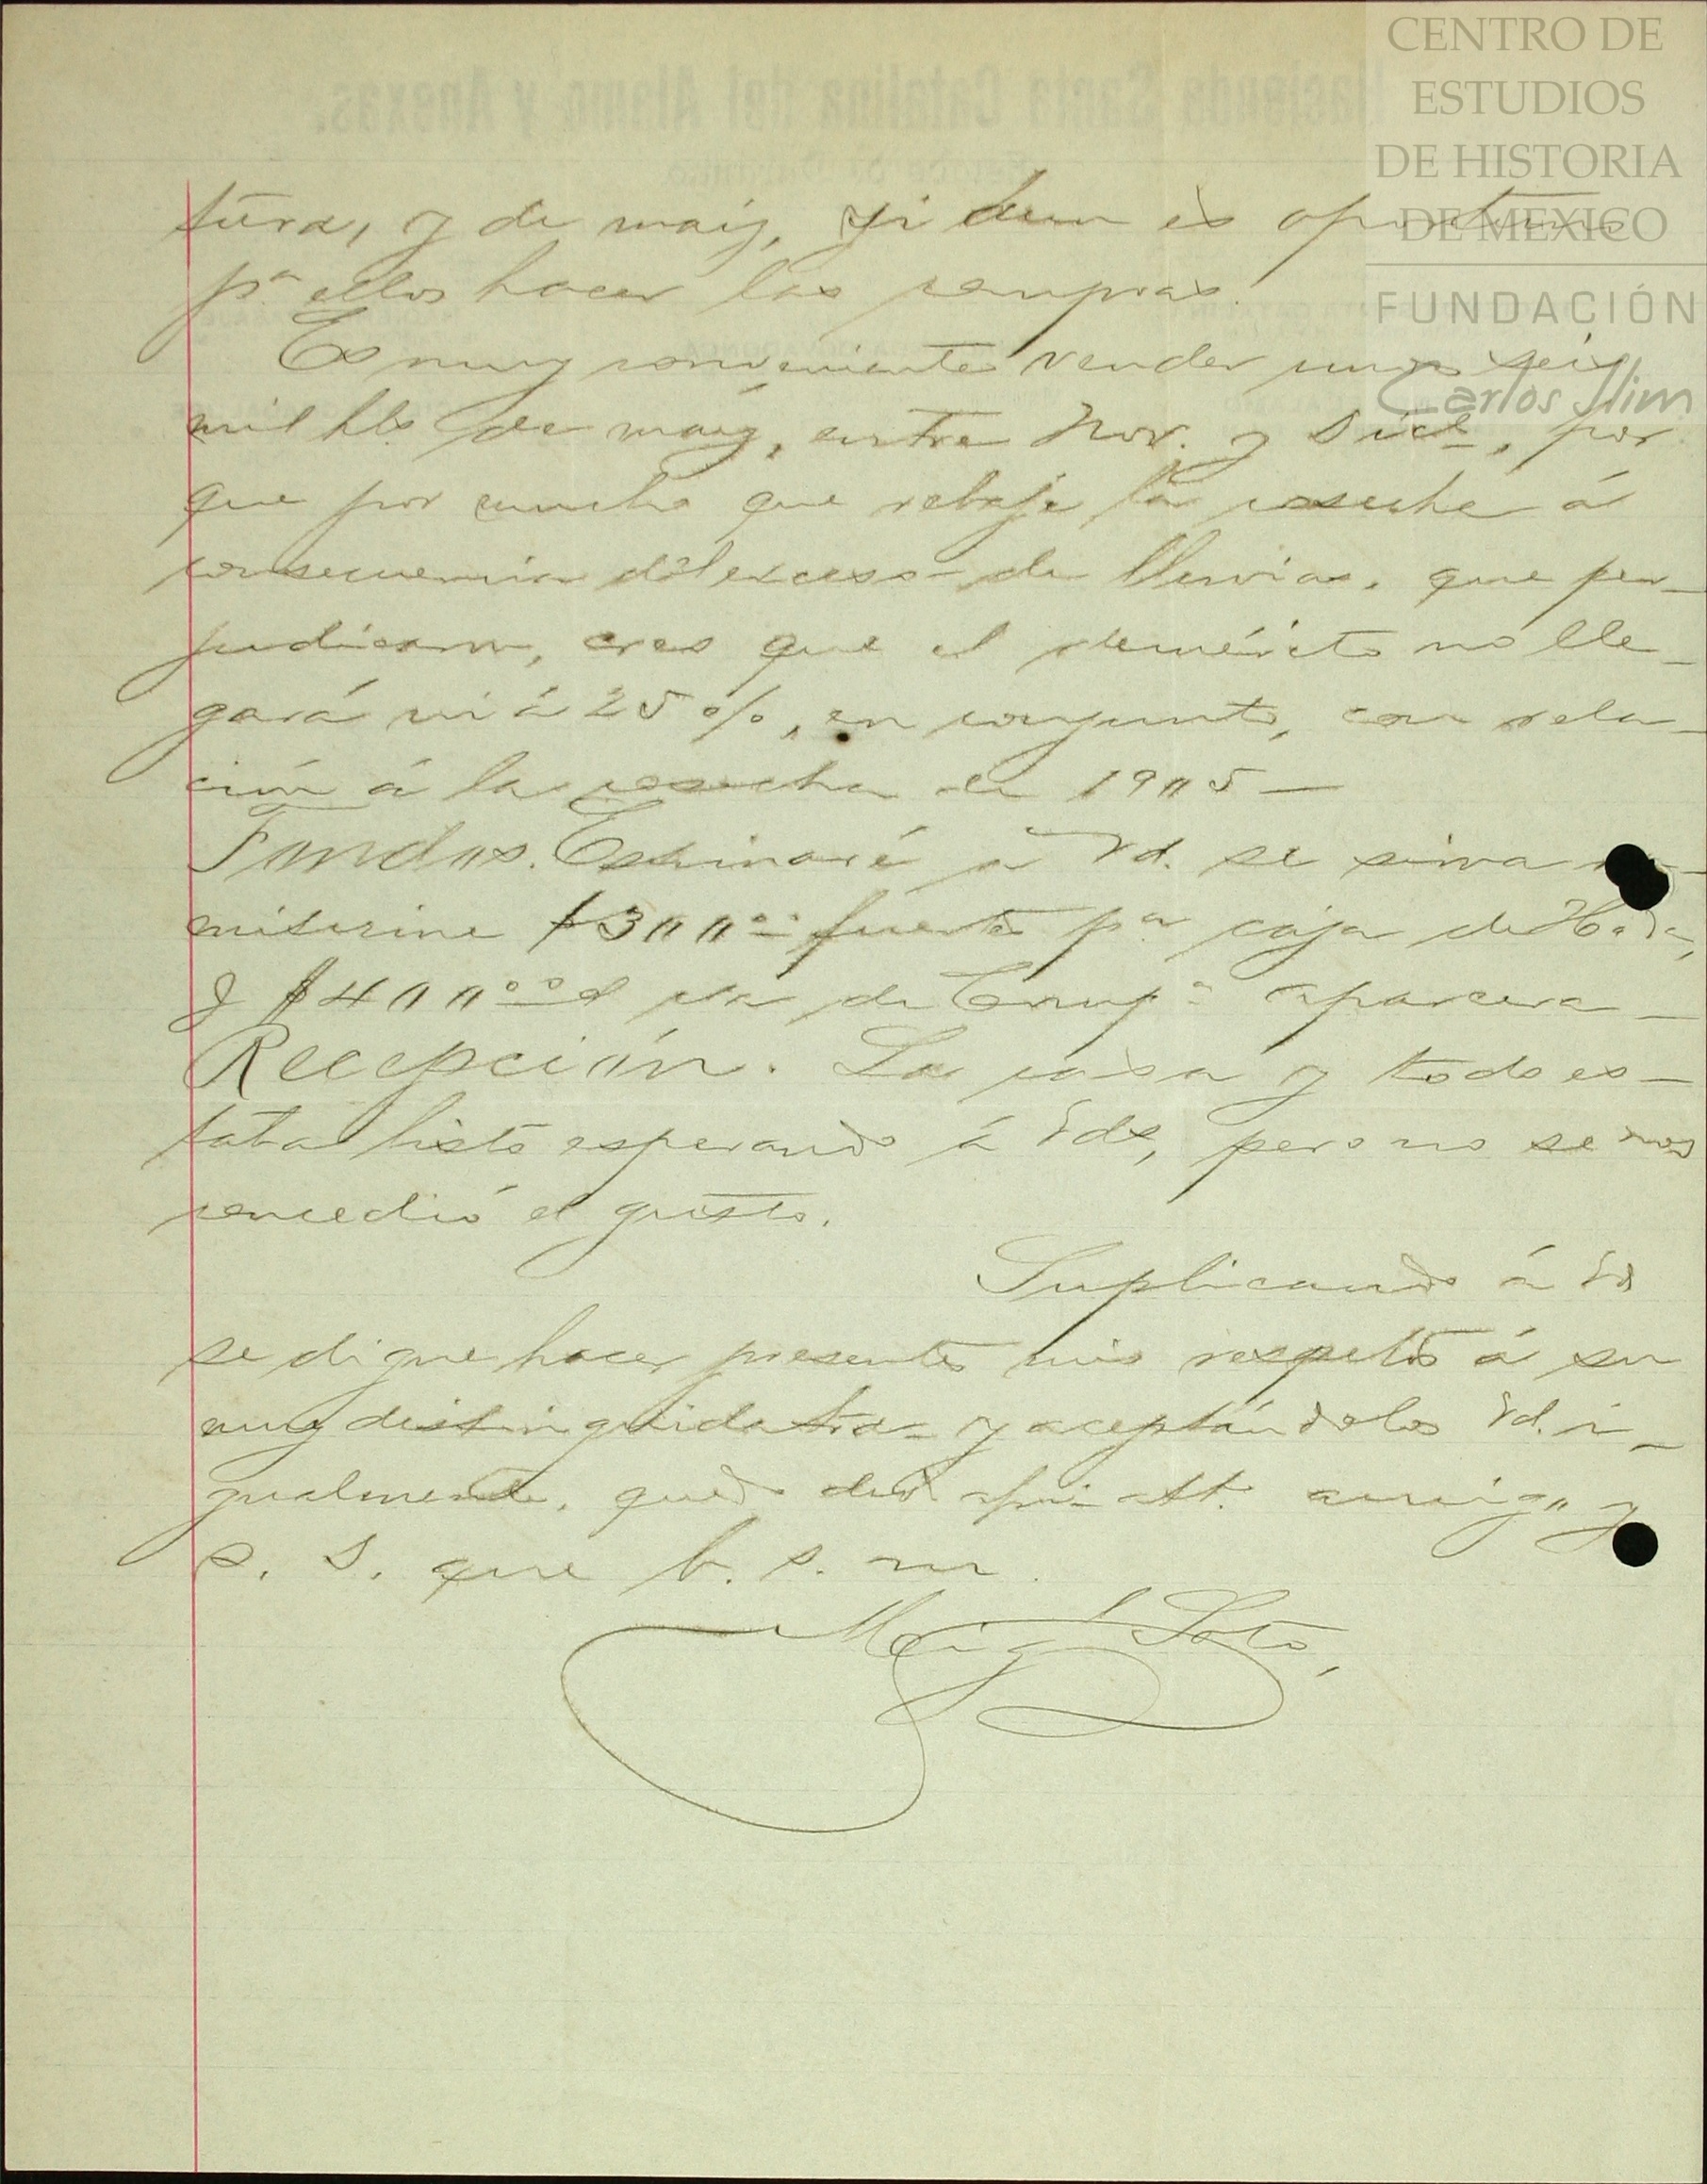 CENTRO DE
ESTUDIOS
DE HISTORIA
DE MEXICO
FUNDACIÓN
Carlos Slim
Hacienda Santa Catalina del Alamo y Anexas.
tura, y de maiz, si aun es oportuno
pª ellos hacer las compras.
Es muy conveniente vender unos seis
mil hls de maiz, entre Nov. y Dice, por
que por mucho que rebaje la cosecha á
consecuencia del exceso de lluvias, que per-
judicaron, creo que el demérito no lle-
gará ni á 25 %, en conjunto, con rela-
ción á la cosecha de 1905 —
Fondos. Estimaré á Vd. se sirva
mitirme $300.00 fuerte pª caja de Hda,
y $400.00 de Compª aparcera —
Recepción. La casa y todo es-
taba listo esperando á Vds, pero no se nos
concedió el gusto.
Suplicando á Vd
se digne hacer presentes mis respetos á su
muy distinguida y aceptándolos Vd. i-
gualmente, quedo de Vd afmo att. amigo y
s. S. que b. s. m.
Migl Soto,